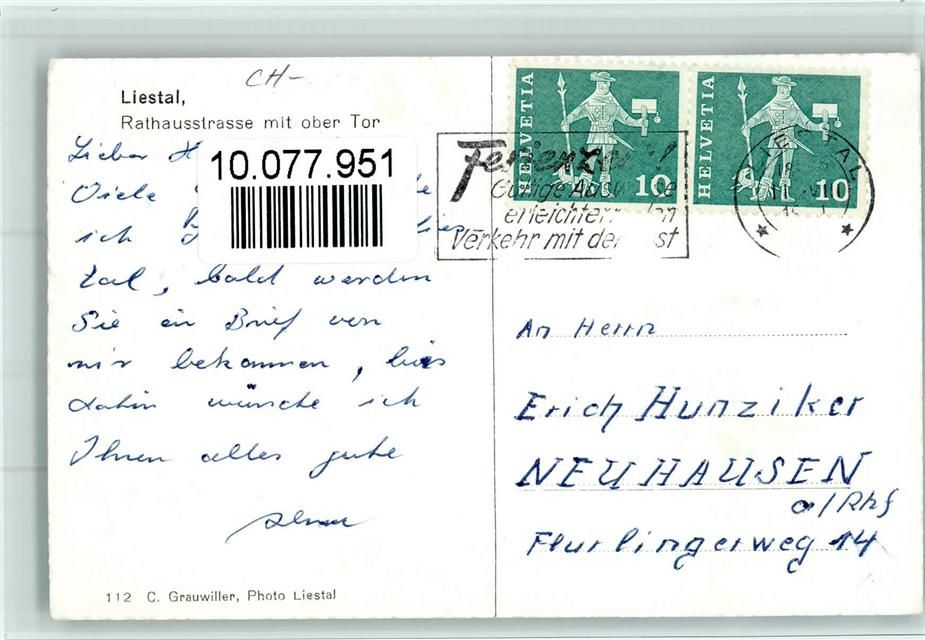 CH-
Liestal,
Rathausstrasse mit ober Tor
Lieber H
10.077.951
Viele
ich
tal, bald werden
Sie ein Brief von
mir bekommen, bis
dahin wünsche ich
Ihnen alles gute
112 C. Grauwiller, Photo Liestal
HELVETIA 10
HELVETIA 10
LIESTAL
Verkehr mit der
An Herrn
Erich Hunziker
NEUHAUSEN
a/Rhf
Flurlingerweg 14